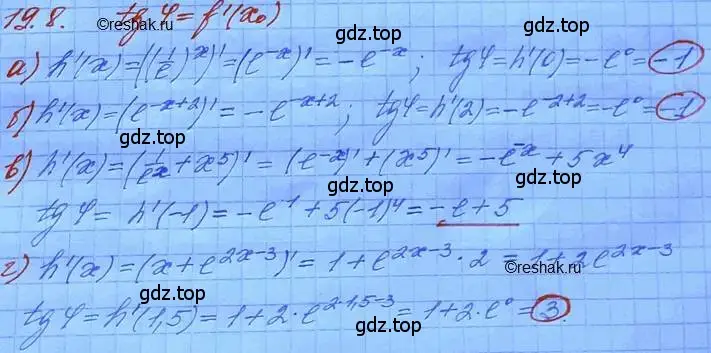 19.8. tg φ = f'(x₀)
©reshak.ru
а) h'(x) = ((1/e)^x)' = (e^{-x})' = -e^{-x}; tg φ = h'(0) = -e^0 = -1
gdz.top
б) h'(x) = (e^{-x+2})' = -e^{-x+2}; tg φ = h'(2) = -e^{-2+2} = -e^0 = -1
gdz.top
в) h'(x) = (1/e^x + x^5)' = (e^{-x})' + (x^5)' = -e^{-x} + 5x^4
gdz.top
tg φ = h'(-1) = -e^{-1} + 5(-1)^4 = -e + 5
gdz.top
г) h'(x) = (x + e^{2x-3})' = 1 + e^{2x-3} · 2 = 1 + 2e^{2x-3}
©reshak.ru
gdz.top
tg φ = h'(1,5) = 1 + 2 · e^{2·1,5-3} = 1 + 2 · e^0 = 3.
gdz.top